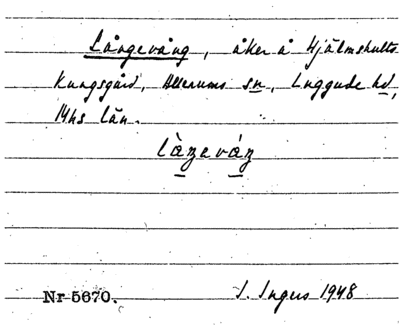 Långevång, åker å Hjälmshults
Kungsgård, Allerums sn, Luggude hd,
Mhs län.
là̱ŋevá̱ŋ
Nr 5670.
I. Ingers 1948